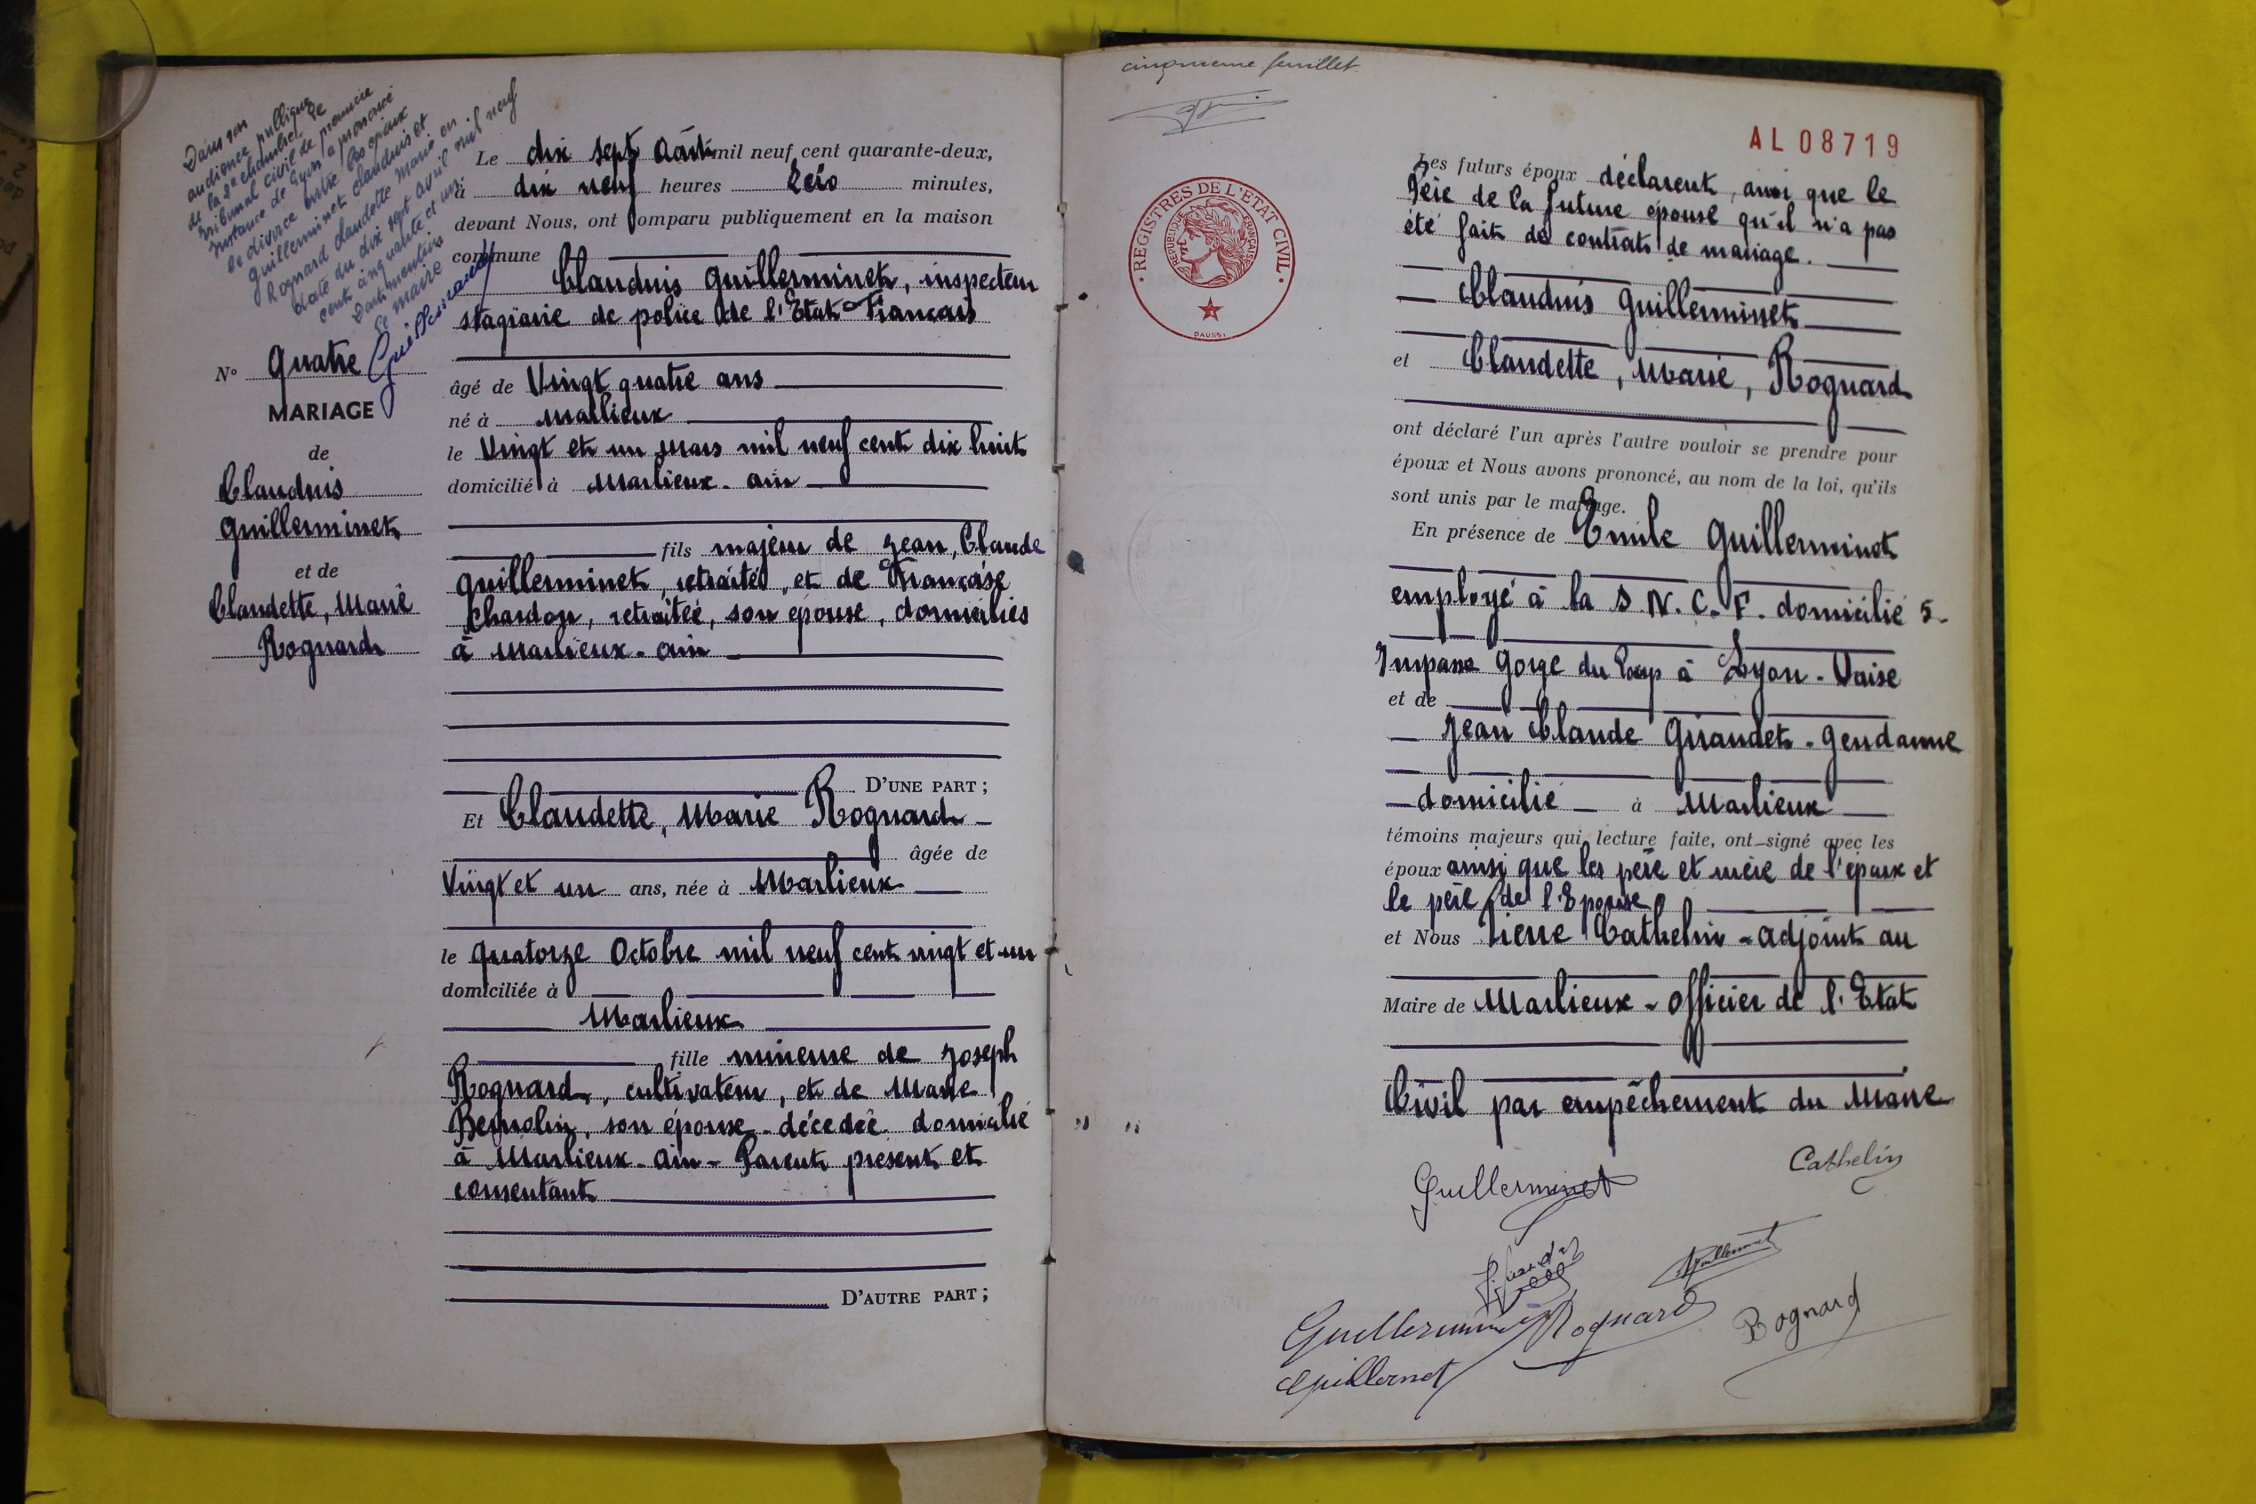 Dans son
audience publique
de la 2e chambre, le
tribunal civil de première
instance de Lyon a prononcé
le divorce entre les époux
Guillerminet Claudius et
Rognard Claudette Marie en
date du dix sept avril mil neuf
cent cinquante et un.
Dont mention
Le maire
N° Quatre
MARIAGE
de
Claudius
Guillerminet
et de
Claudette, Marie
Rognard
Le dix sept Août mil neuf cent quarante-deux,
à dix neuf heures zéro minutes,
devant Nous, ont comparu publiquement en la maison
commune
Claudius Guillerminet, inspecteur
stagiaire de police de l'Etat Français
âgé de Vingt quatre ans
né à Marlieux
le Vingt et un Mars mil neuf cent dix huit
domicilié à Marlieux - Ain
fils majeur de Jean, Claude
Guillerminet, retraité, et de Françoise
Chardon, retraitée, son épouse, domiciliés
à Marlieux - Ain
D'UNE PART ;
Et Claudette, Marie Rognard
âgée de
Vingt et un ans, née à Marlieux
le quatorze Octobre mil neuf cent vingt et un
domiciliée à
Marlieux
fille mineure de Joseph
Rognard, cultivateur, et de Marie
son épouse - décédée - domicilié
à Marlieux - Ain - Parent présent et
consentant
D'AUTRE PART ;
cinquième feuillet
AL 08719
REGISTRES DE L'ETAT CIVIL
REPUBLIQUE FRANÇAISE
Les futurs époux déclarent, ainsi que le
Père de la future épouse qu'il n'a pas
été fait de contrat de mariage.
Claudius Guillerminet
et Claudette, Marie, Rognard
ont déclaré l'un après l'autre vouloir se prendre pour
époux et Nous avons prononcé, au nom de la loi, qu'ils
sont unis par le mariage.
En présence de Emile Guillerminet
employé à la S.N.C.F. domicilié 5-
Impasse Gorge du Loup à Lyon - Vaise
et de
Jean Claude Giraudet - gendarme
domicilié à Marlieux
témoins majeurs qui, lecture faite, ont signé avec les
époux ainsi que les père et mère de l'époux et
le père de l'Epouse
et Nous Pierre Cathelin - adjoint au
Maire de Marlieux - Officier de l'Etat
Civil par empêchement du Maire
Cathelin
Guillerminet
Guillerminet
Rognard
Rognard